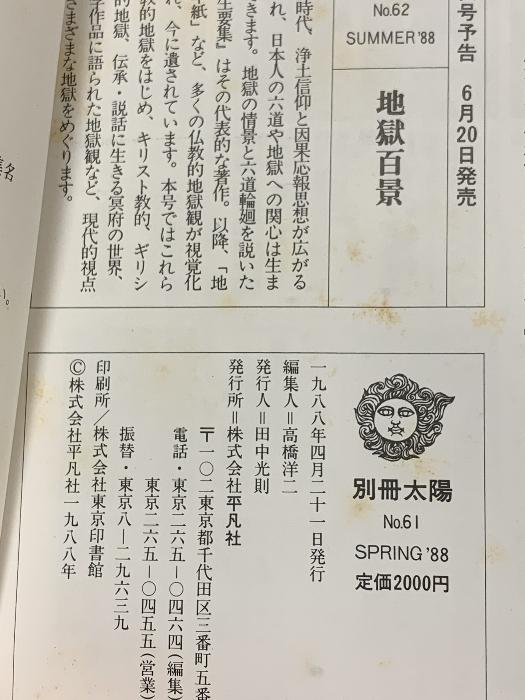 号予告 6月20日発売
No.62
SUMMER '88
地獄百景
時代、浄土信仰と因果応報思想が広がる
れ、日本人の六道や地獄への関心は生ま
きます。地獄の情景と六道輪廻を説いた
生要集』はその代表的な著作。以降、「地
紙」など、多くの仏教的地獄観が視覚化
れ、今に遺されています。本号ではこれら
教的地獄をはじめ、キリスト教的、ギリシ
的地獄、伝承・説話に生きる冥府の世界、
学作品に語られた地獄観など、現代的視点
さまざまな地獄をめぐります。
別冊太陽
No.61
SPRING '88
定価2000円
一九八八年四月二十一日発行
編集人=高橋洋二
発行人=田中光則
発行所=株式会社平凡社
〒一〇二東京都千代田区三番町五番
電話・東京二六五-〇四六四(編集)
東京二六五-〇四五五(営業)
振替・東京八-二九六三九
印刷所/株式会社東京印書館
©株式会社平凡社一九八八年